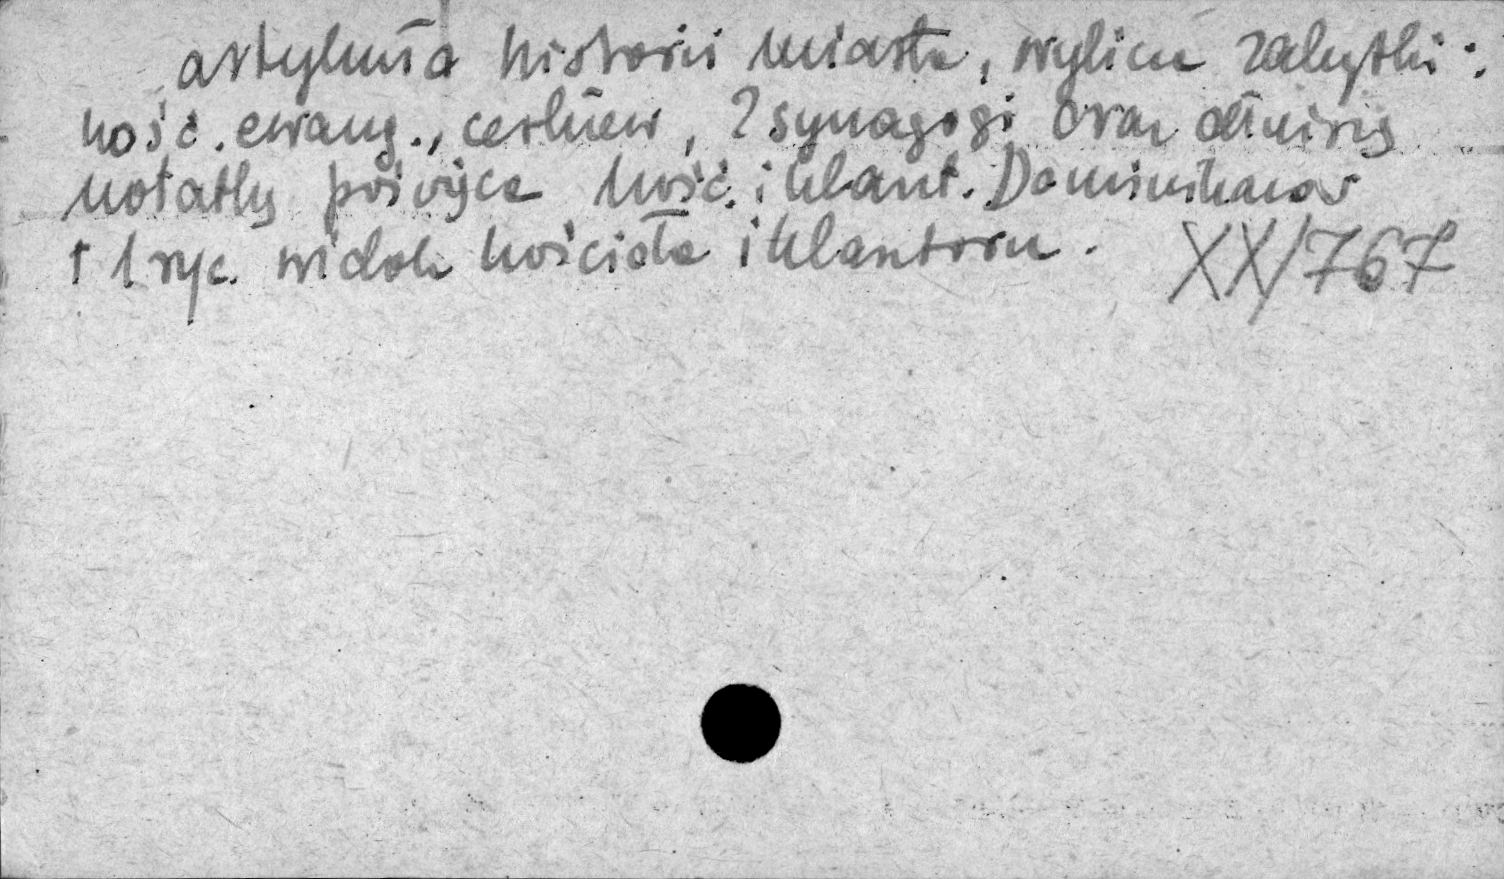 artykuł o historii miasta, wylicza zabytki:
kość. ewang., cerkiew, 2 synagogi oraz dłuższą
notatkę poświęca kość. i klaszt. Dominikanów
+ 1 ryc. widok kościoła i klasztoru. XX/767